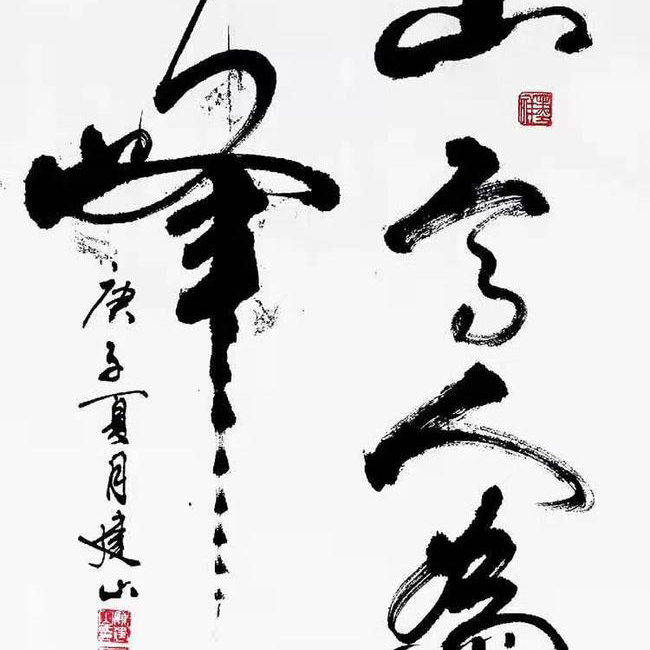 山高人為
峰
庚子夏月建山